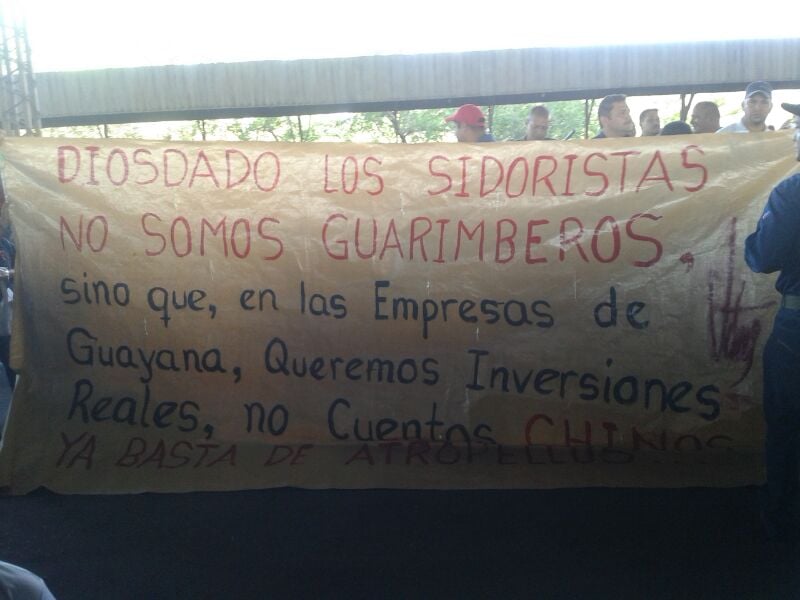 DIOSDADO LOS SIDORISTAS
NO SOMOS GUARIMBEROS.
sino que, en las Empresas de
Guayana, Queremos Inversiones
Reales, no Cuentos CHINOS
YA BASTA DE ATROPELLOS...